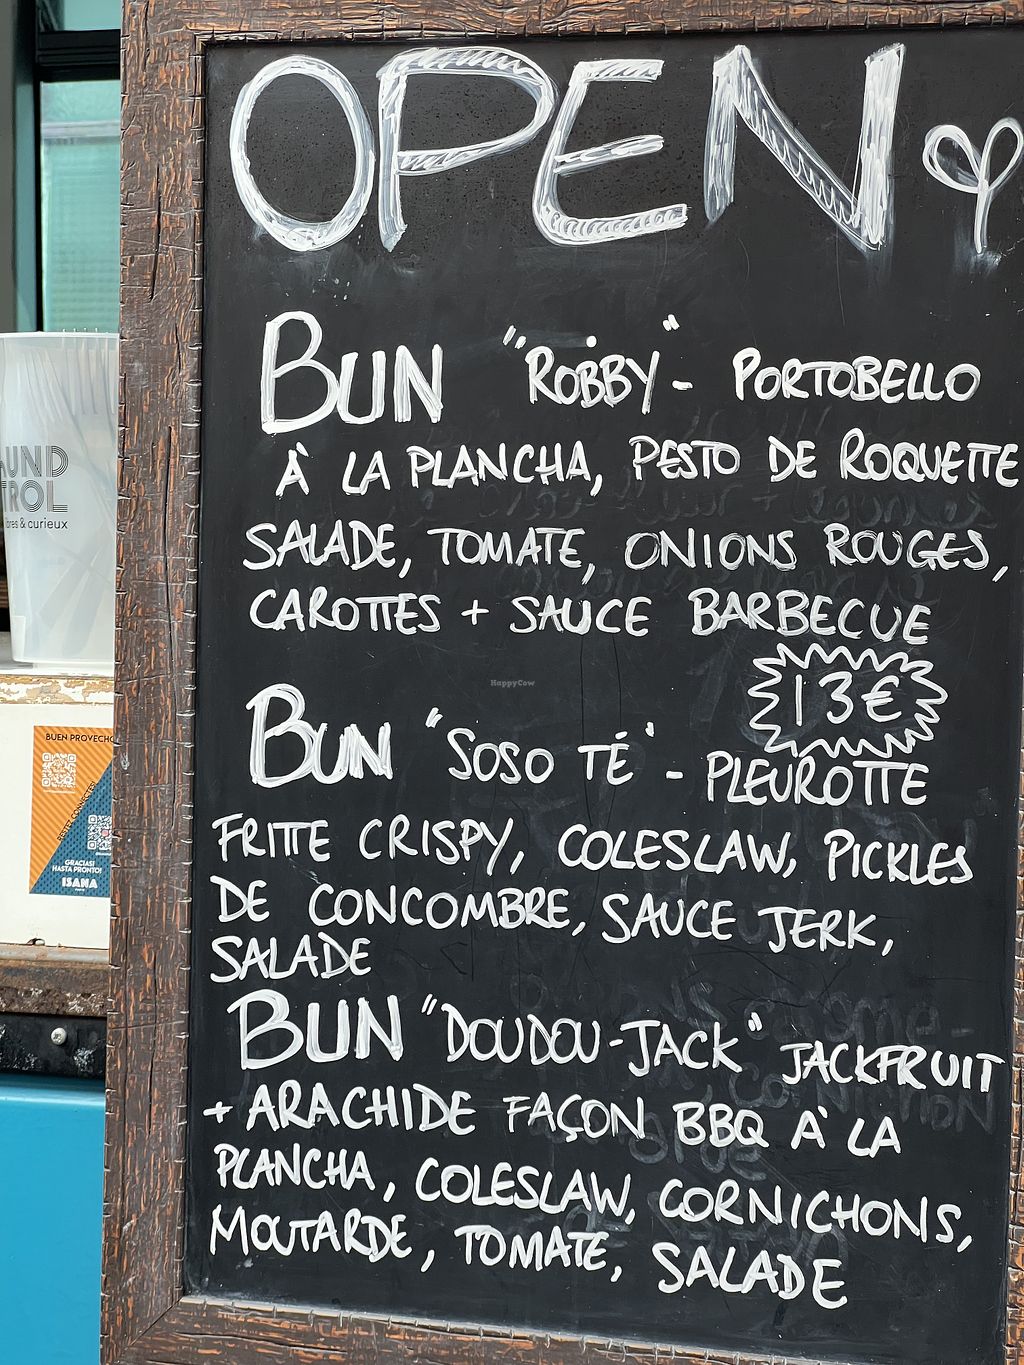 OPEN
BUN "ROBBY" - PORTOBELLO
À LA PLANCHA, PESTO DE ROQUETTE
SALADE, TOMATE, ONIONS ROUGES,
CAROTTES + SAUCE BARBECUE
13€
BUN "SOSO TÉ" - PLEUROTTE
FRITTE CRISPY, COLESLAW, PICKLES
DE CONCOMBRE, SAUCE JERK,
SALADE
BUN "DOUDOU-JACK" JACKFRUIT
+ ARACHIDE FAÇON BBQ À LA
PLANCHA, COLESLAW, CORNICHONS,
MOUTARDE, TOMATE, SALADE
HappyCow
& curieux
BUEN PROVECHO
GRACIAS!
HASTA PRONTO!
ISANA